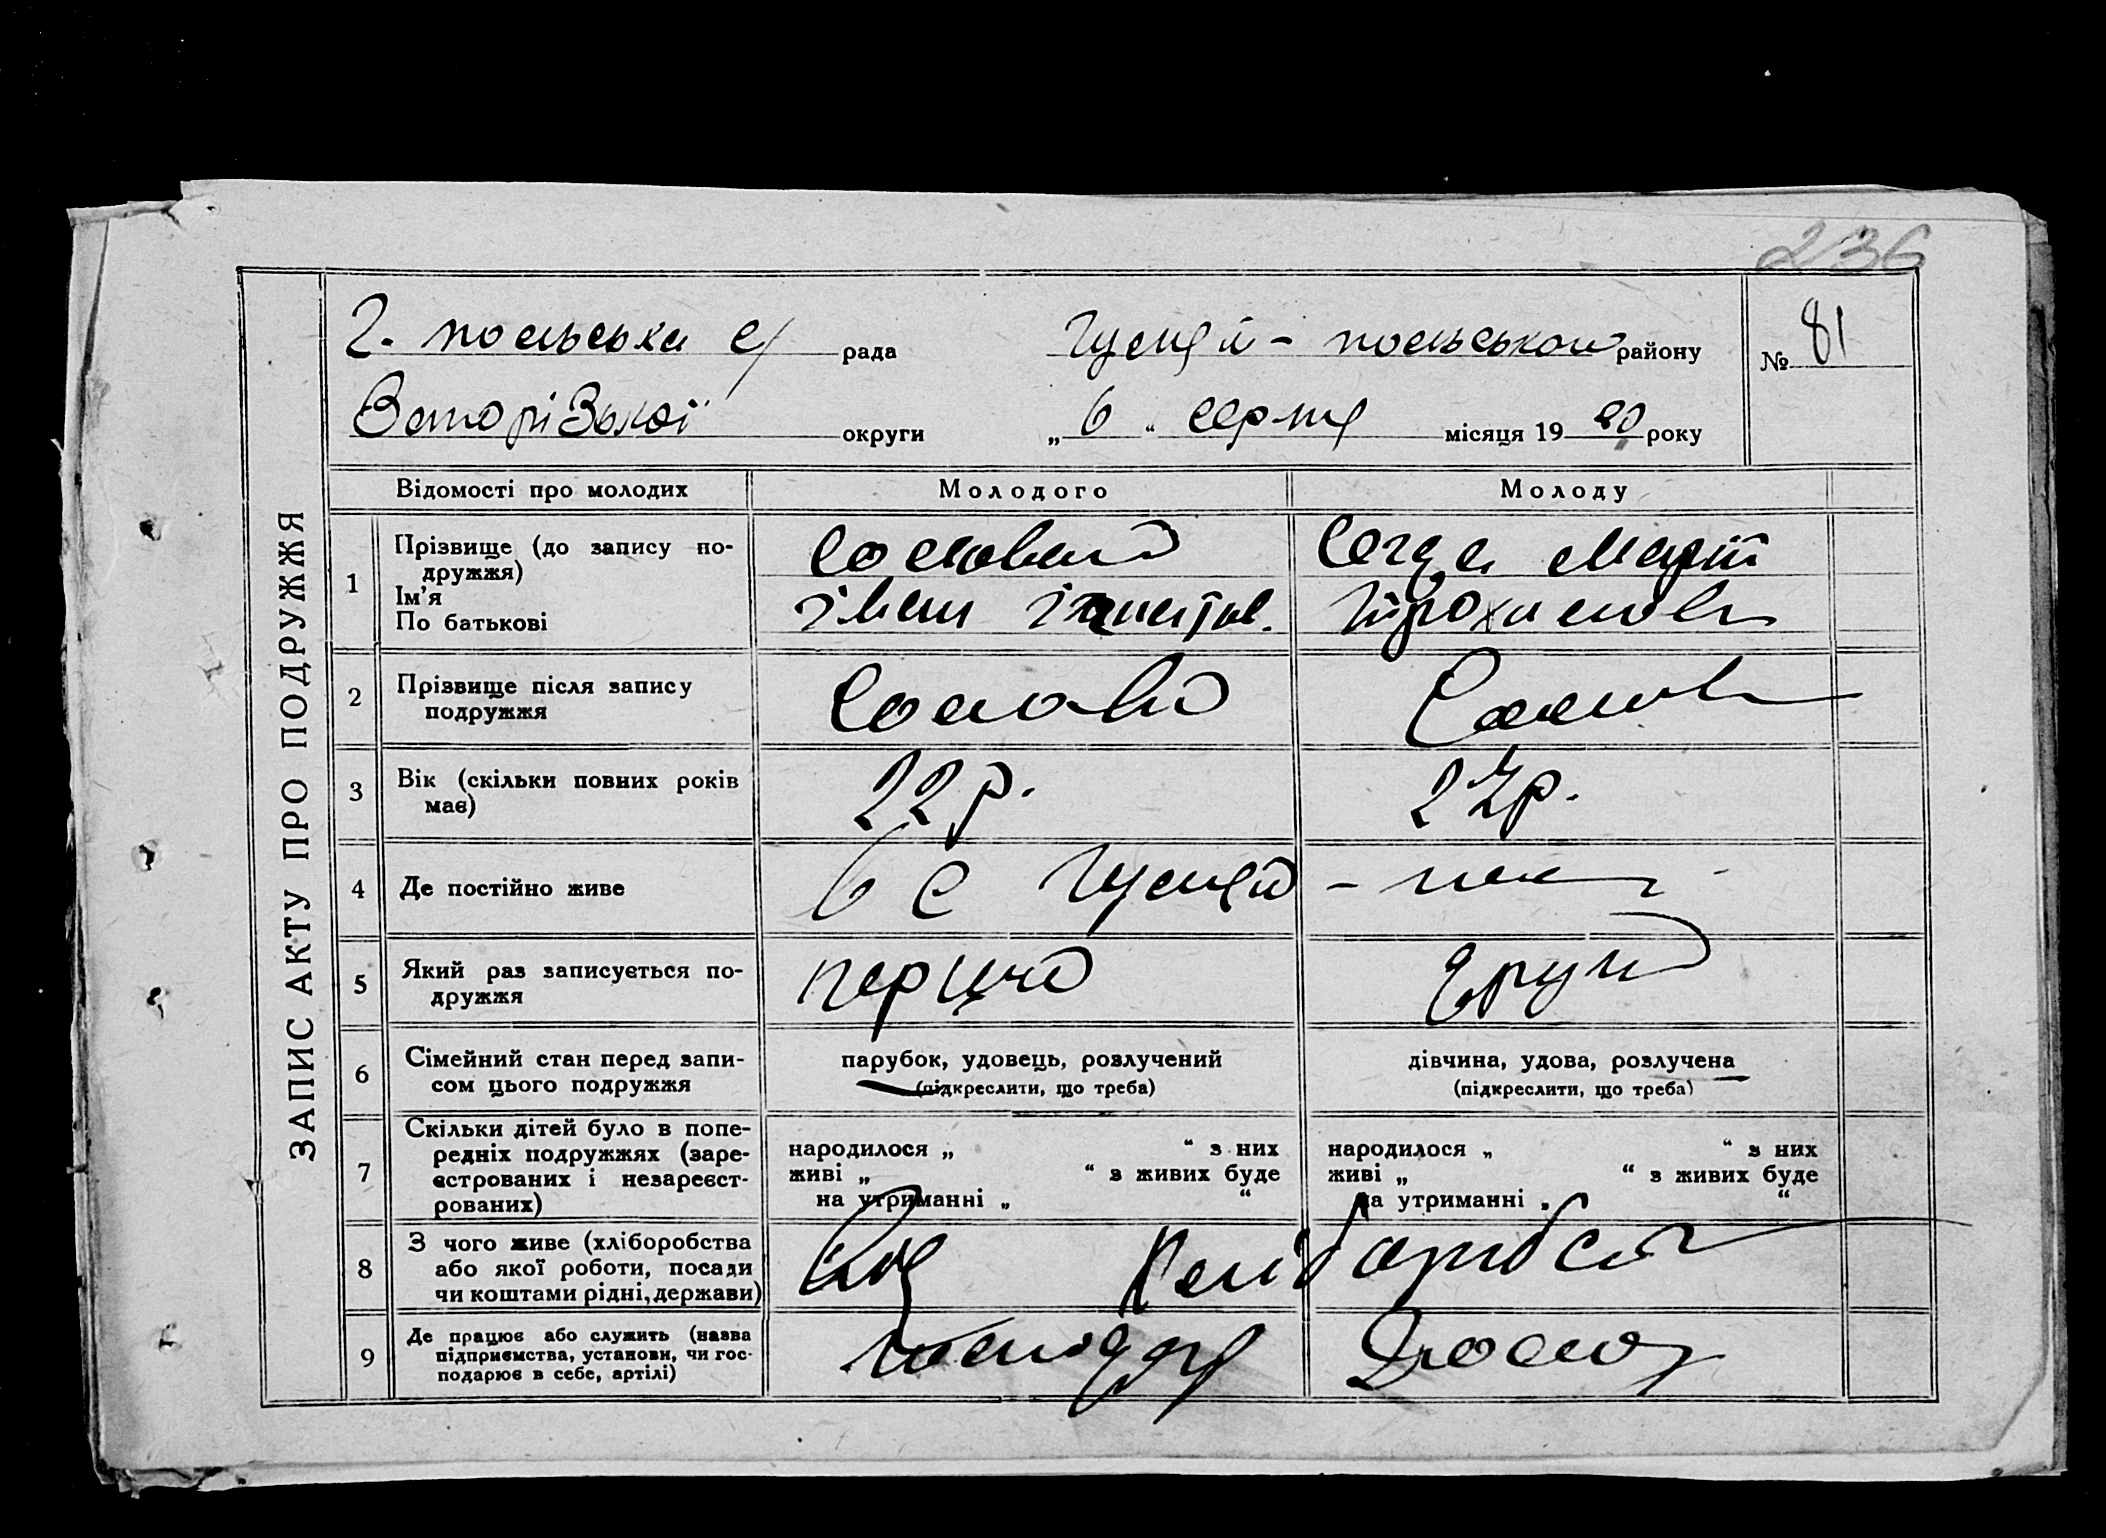 236
Г. польська с/рада Гуляй-польського району № 81
Запорізької округи „6“ серпня місяця 19 року
ЗАПИС АКТУ ПРО ПОДРУЖЖЯ
Відомості про молодих Молодого Молоду
1 Прізвище (до запису по-
дружжя)
Ім'я
По батькові
Іван
Трохимовна
2 Прізвище після запису
подружжя
3 Вік (скільки повних років
має)
22 р. 22 р.
4 Де постійно живе
в с Гуляй - пол
5 Який раз записується по-
дружжя
перший другий
6 Сімейний стан перед запи-
сом цього подружжя
парубок, удовець, розлучений
(підкреслити, що треба)
дівчина, удова, розлучена
(підкреслити, що треба)
7 Скільки дітей було в попе-
редніх подружжях (заре-
єстрованих і незареєст-
рованих)
народилося „ “ з них
живі „ “ з живих буде
на утриманні „ “
народилося „ “ з них
живі „ “ з живих буде
на утриманні „ “
8 З чого живе (хліборобства
або якої роботи, посади
чи коштами рідні, держави)
хліборобст
9 Де працює або служить (назва
підприємства, установи, чи гос-
подарює в себе, артілі)